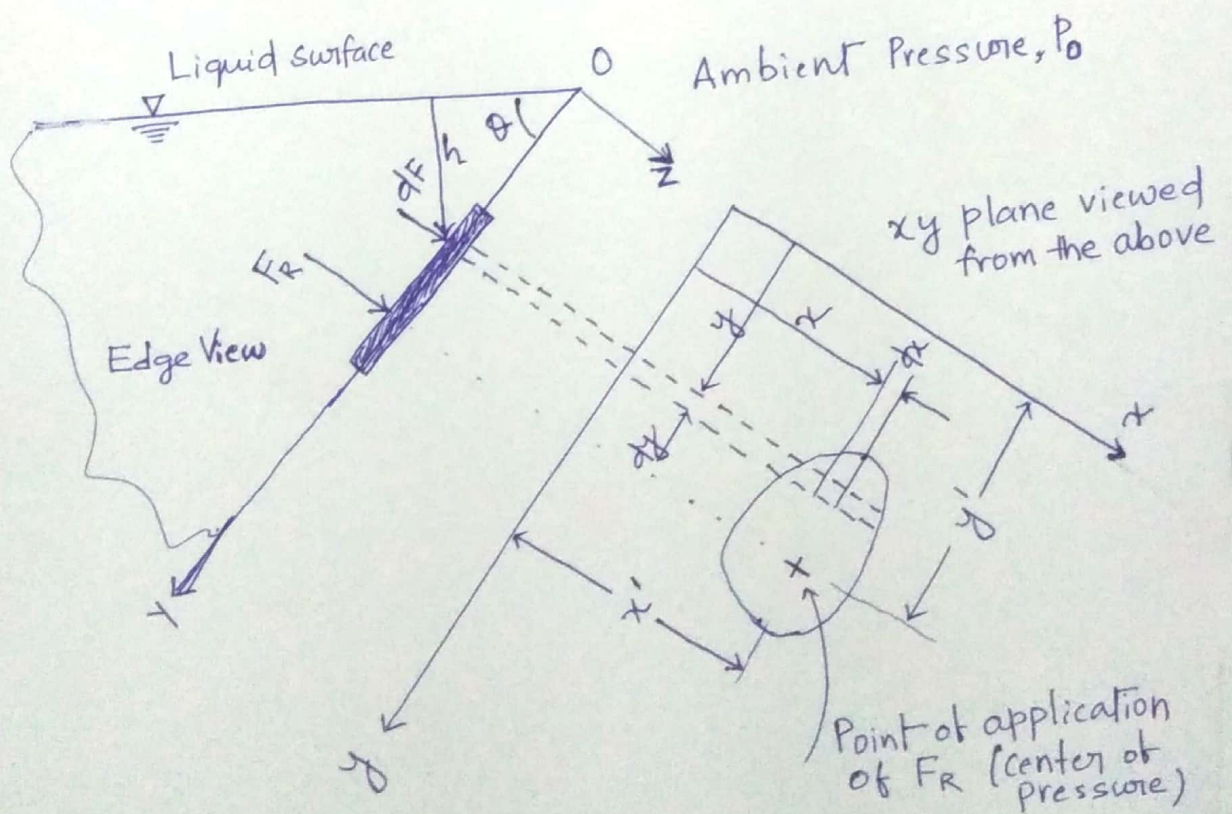 Liquid surface
O
Ambient Pressure, P₀
θ
h
dF
z
xy plane viewed
from the above
F_R
Edge View
y
x
dx
dy
x
y'
x'
y
y
Point of application
of F_R (center of
pressure)